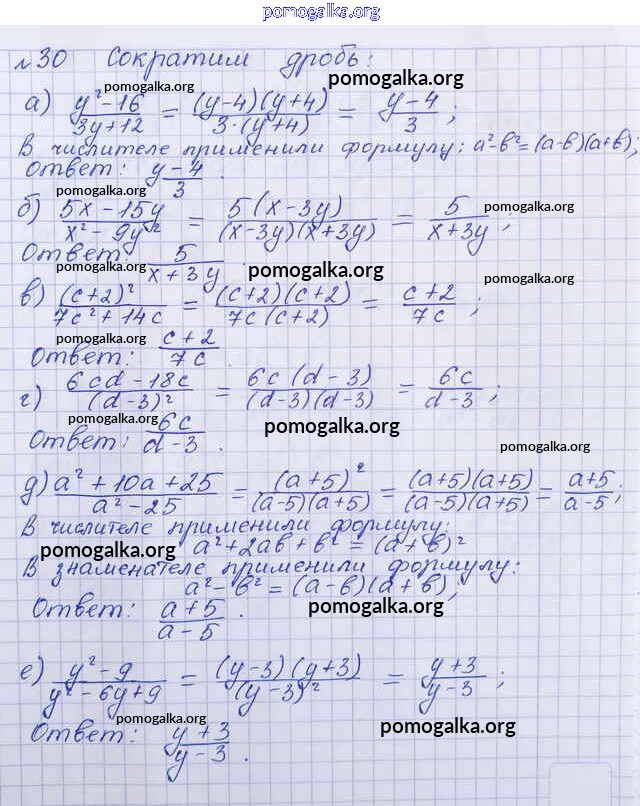 pomogalka.org
№30 Сократим дробь:
pomogalka.org pomogalka.org
а) (y²-16)/(3y+12) = ((y-4)(y+4))/(3·(y+4)) = (y-4)/3;
В числителе применили формулу: a²-b²=(a-b)(a+b);
Ответ: (y-4)/3.
pomogalka.org
б) (5x-15y)/(x²-9y²) = (5(x-3y))/((x-3y)(x+3y)) = 5/(x+3y);
pomogalka.org
Ответ: 5/(x+3y).
pomogalka.org pomogalka.org pomogalka.org
в) (c+2)²/(7c²+14c) = ((c+2)(c+2))/(7c(c+2)) = (c+2)/(7c);
pomogalka.org
Ответ: (c+2)/(7c)
г) (6cd-18c)/(d-3)² = (6c(d-3))/((d-3)(d-3)) = 6c/(d-3);
pomogalka.org pomogalka.org
Ответ: 6c/(d-3).
pomogalka.org
д) (a²+10a+25)/(a²-25) = (a+5)²/((a-5)(a+5)) = ((a+5)(a+5))/((a-5)(a+5)) = (a+5)/(a-5);
В числителе применили формулу:
pomogalka.org a²+2ab+b²=(a+b)²
В знаменателе применили формулу:
a²-b²=(a-b)(a+b);
Ответ: (a+5)/(a-5).
pomogalka.org
е) (y²-9)/(y²-6y+9) = ((y-3)(y+3))/(y-3)² = (y+3)/(y-3);
pomogalka.org pomogalka.org
Ответ: (y+3)/(y-3).